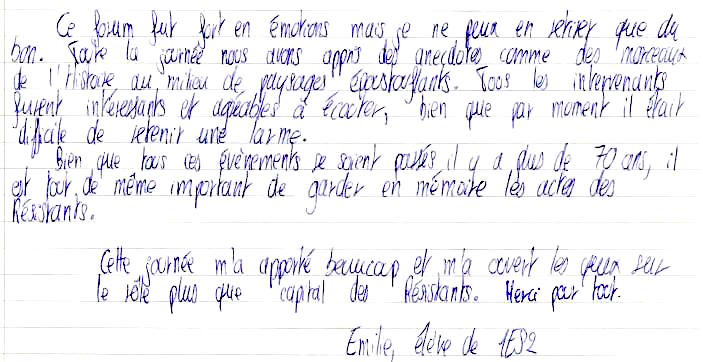 Ce forum fut fort en émotions mais je ne peux en retirer que du
bon. Toute la journée nous avons appris des anecdotes comme des morceaux
de l'Histoire au milieu de paysages époustouflants. Tous les intervenants
furent intéressants et agréables à écouter, bien que par moment il était
difficile de retenir une larme.
Bien que tous ces évènements se soient passés il y a plus de 70 ans, il
est tout de même important de garder en mémoire les actes des
Résistants.
Cette journée m'a apporté beaucoup et m'a ouvert les yeux sur
le rôle plus que capital des Résistants. Merci pour tout.
Emilie, élève de 1ES2